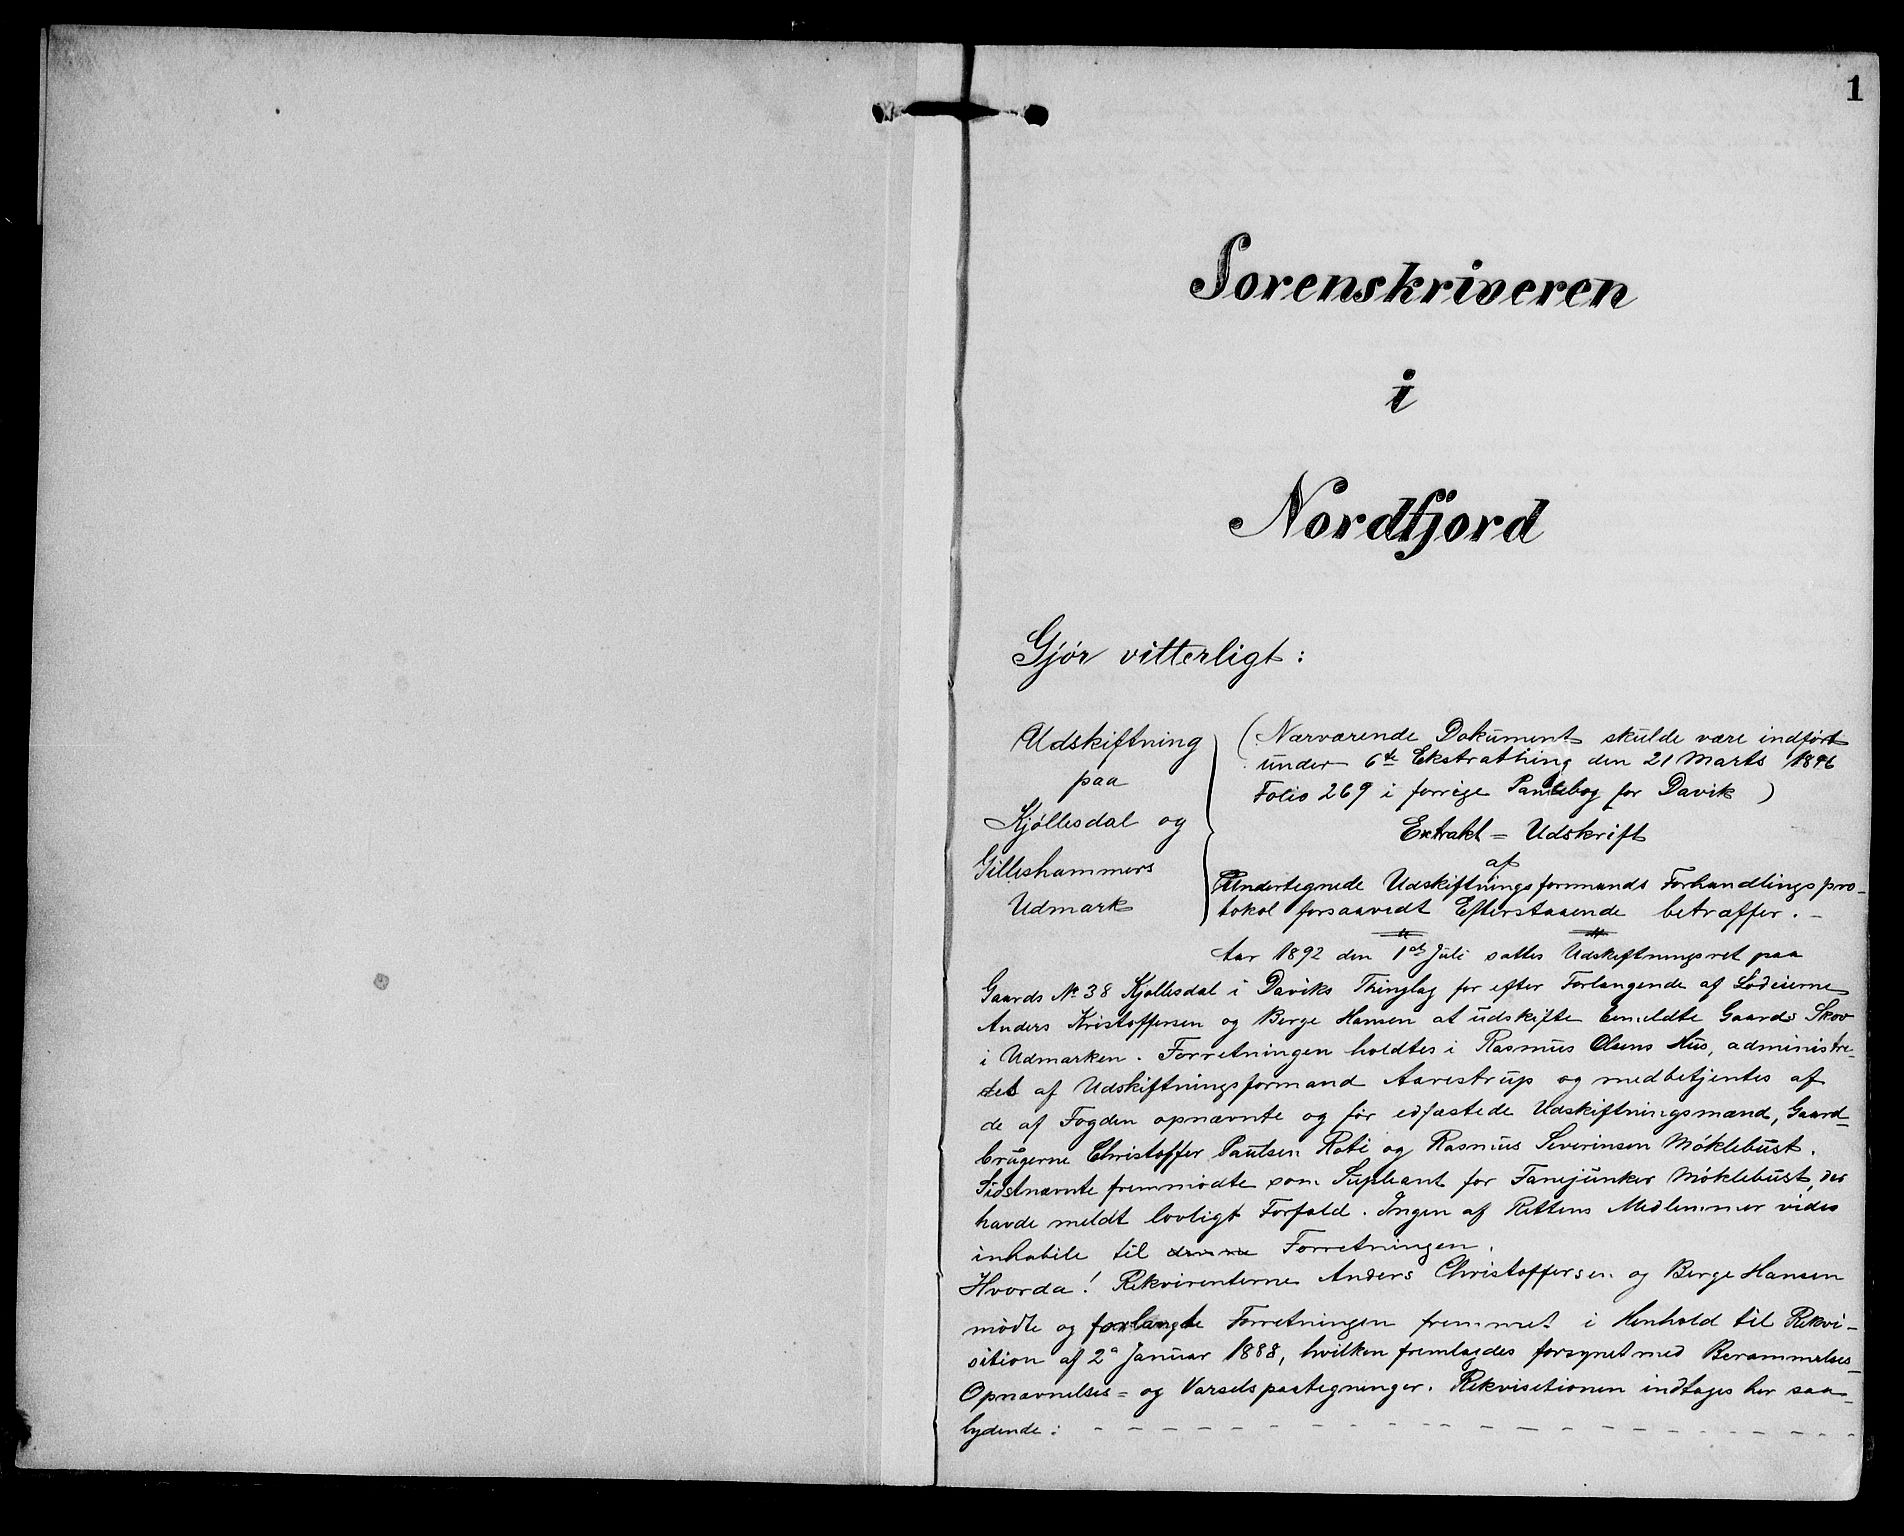 1
Sorenskriveren
i
Nordfjord
Gjör vitterligt:
Udskiftning
paa
Kjöllesdal og
Gilleshammers
Udmark
(Nærværende Dokument skulde være indfört
under 6te Ekstrathing den 21 Marts 1896
Folio 269 i forrige Pantebog for Davik)
Extrakt = Udskrift
af
Undertegnede Udskiftningsformands Forhandlingspro-
tokol forsaavidt Efterstaaende betræffer. -
Aar 1892 den 1ste Juli sattes Udskiftningsret paa
Gaards No 38 Kjöllesdal i Daviks Thinglag for efter Forlangende af Lodeierne
Anders Kristoffersen og Berge Hansen at udskifte bemeldte Gaards Skov
i Udmarken. Forretningen holdtes i Rasmus Olsens Hus, administre-
det af Udskiftningsformand Aarestrup og medbetjentes af
de af Fogden opnævnte og för edfæstede Udskiftningsmænd, Gaard-
brugerne Christoffer Paulsen Roti og Rasmus Severinsen Möklebust.
Sidstnævnte fremmödte som Supleant for Fanejunker Möklebust, der
havde meldt lovligt Forfald. Ingen af Rettens Medlemmer vides
inhabile til denne Forretningen.
Hvorda! Rekvirenterne Anders Christoffersen og Berge Hansen
mödte og forlangte Forretningen fremmet i Henhold til Rekvi-
sition af 2n Januar 1888, hvilken fremlagdes forsynet med Berammelses-
Opnævnelses= og Varselspaategninger. Rekvisitionen indtages her saa-
lydende: